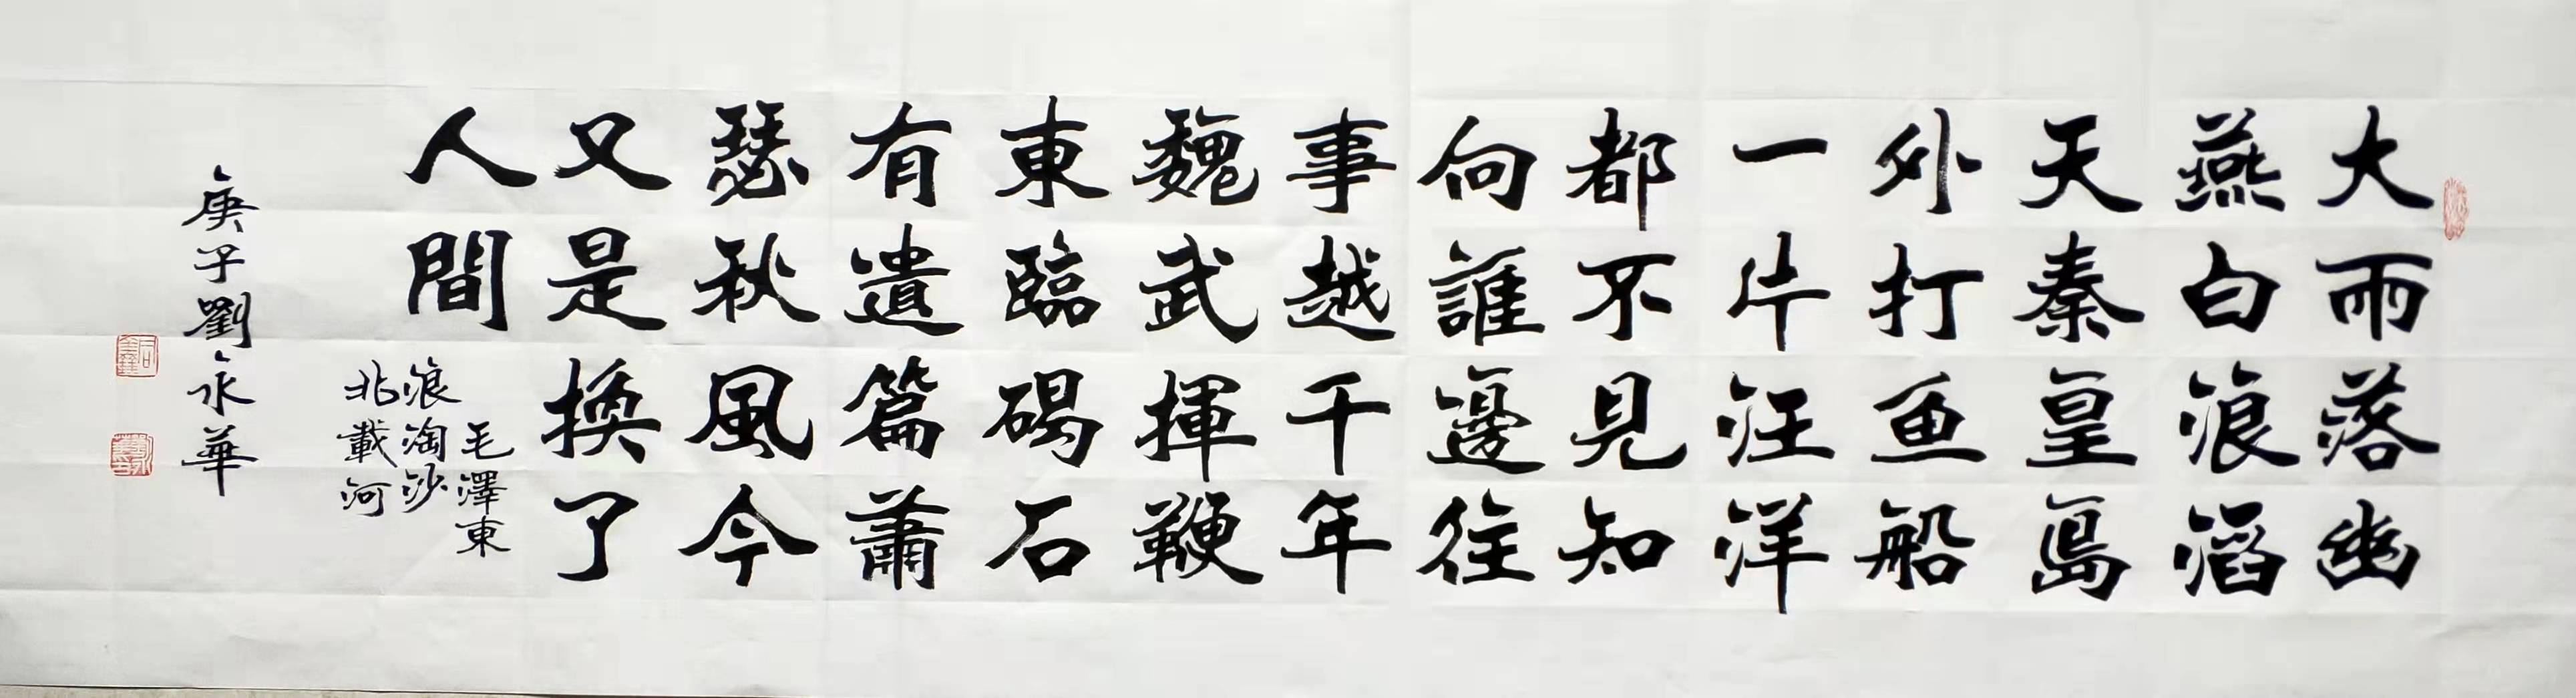 大雨落幽
燕白浪滔
天秦皇島
外打魚船
一片汪洋
都不見知
向誰邊往
事越千年
魏武揮鞭
東臨碣石
有遺篇蕭
瑟秋風今
又是換了
人間
毛澤東
浪淘沙
北載河
庚子劉永華